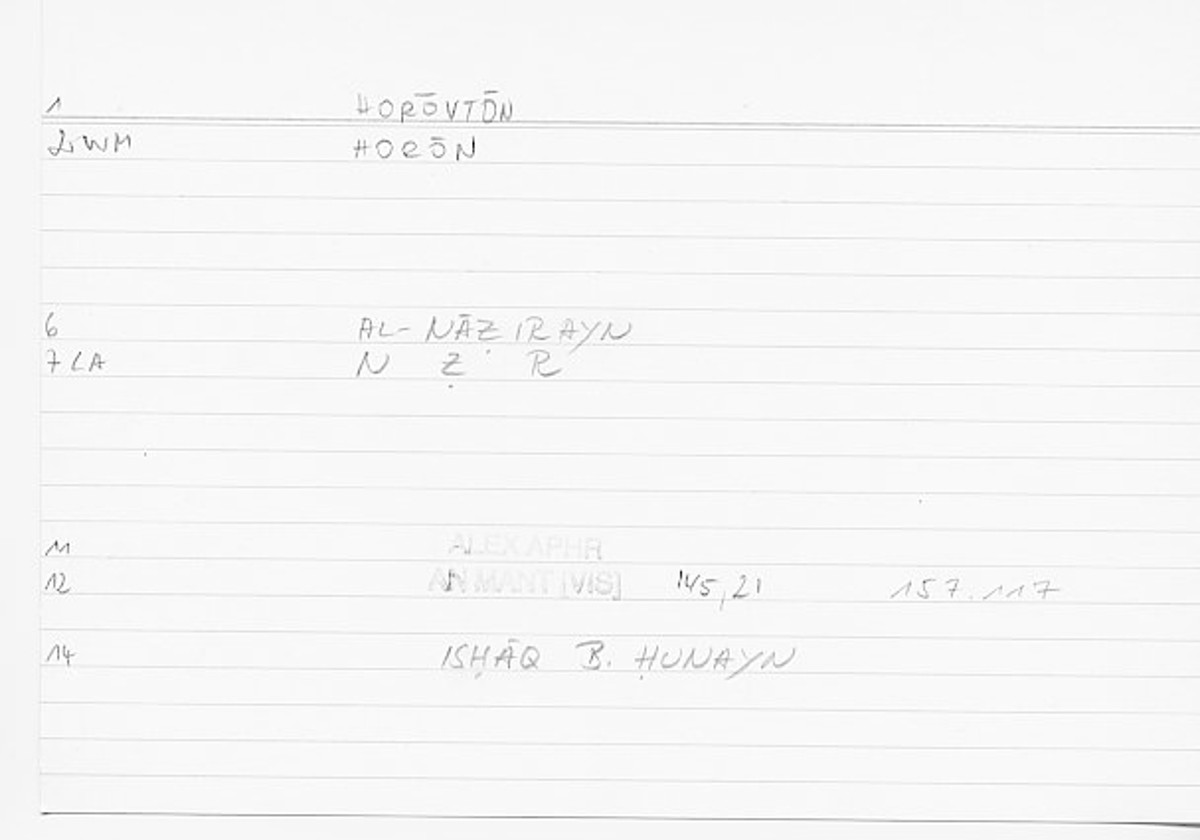 1 HORŌVTŌN
2 WM HORŌN
6 AL-NĀẒIRAYN
7 LA N Ẓ R
11 ALEX APHR
12 AN MANT [VIS] 145,21 157.117
14 ISḤĀQ B. ḤUNAYN